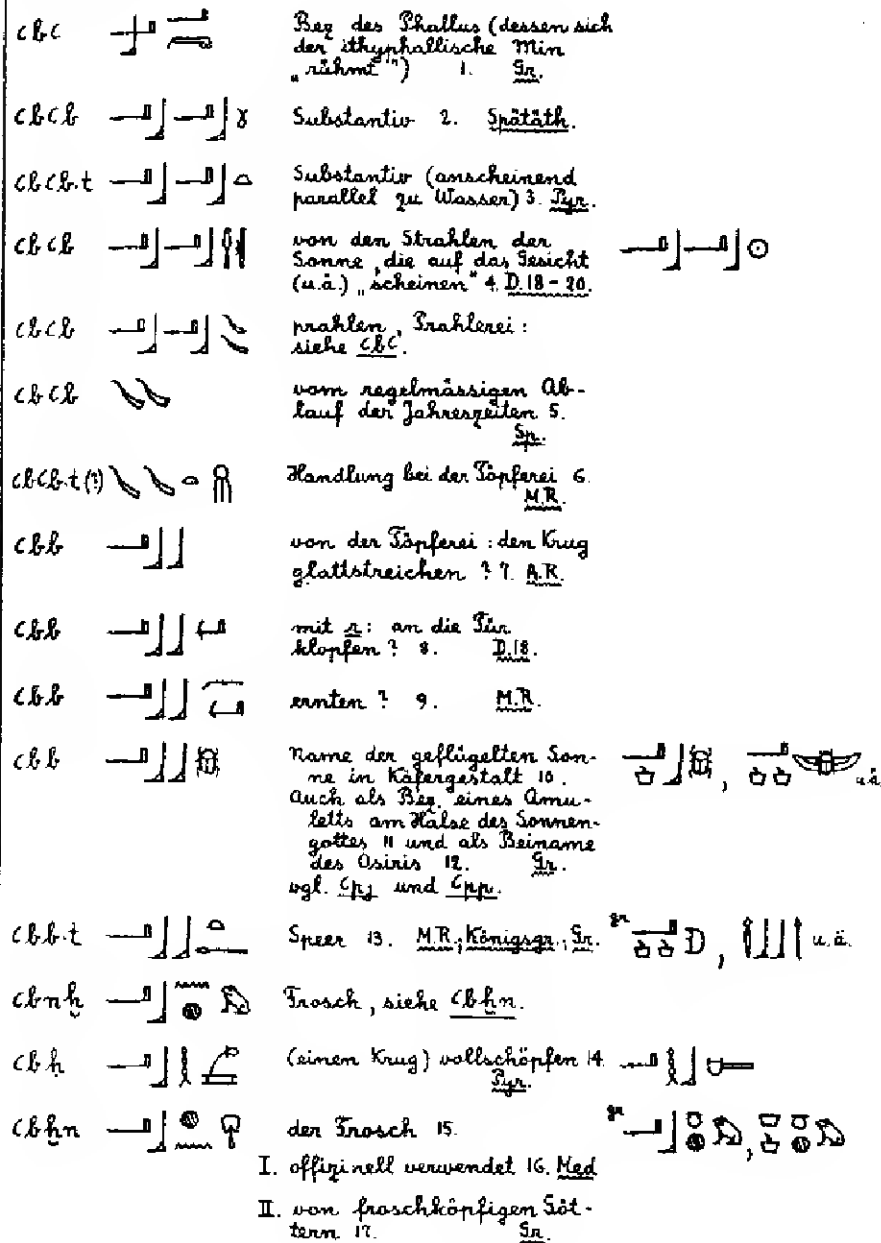 ꜥbꜥ Bez des Phallus (dessen sich
der ithyphallische Min
„rühmt") 1. Gr.
ꜥbꜥb Substantiv 2. Spätäth.
ꜥbꜥb.t Substantiv (anscheinend
parallel zu Wasser) 3. Pyr.
ꜥbꜥb von den Strahlen der
Sonne, die auf das Gesicht
(u.ä.) „scheinen" 4. D.18-20.
ꜥbꜥb prahlen, Prahlerei:
siehe ꜥbꜥ.
ꜥbꜥb vom regelmässigen Ab-
lauf der Jahreszeiten 5.
Sp.
ꜥbꜥb.t (?) Handlung bei der Töpferei 6.
M.R.
ꜥbb von der Töpferei: den Krug
glattstreichen ? 7. A.R.
ꜥbb mit r: an die Tür
klopfen ? 8. D.18.
ꜥbb ernten ? 9. M.R.
ꜥbb Name der geflügelten Son-
ne in Käfergestalt 10. , u.ä.
Auch als Bez. eines Amu-
letts am Halse des Sonnen-
gottes 11 und als Beiname
des Osiris 12. Gr.
vgl. ꜥpj und ꜥpp.
ꜥbb.t Speer 13. M.R.; Königsgr.; Gr. gr , u.ä.
ꜥbnḫ Frosch, siehe ꜥbḫn.
ꜥbḥ (einen Krug) vollschöpfen 14.
Pyr.
ꜥbḫn der Frosch 15. gr ,
I. offizinell verwendet 16. Med
II. von froschköpfigen Göt-
tern 17. Gr.